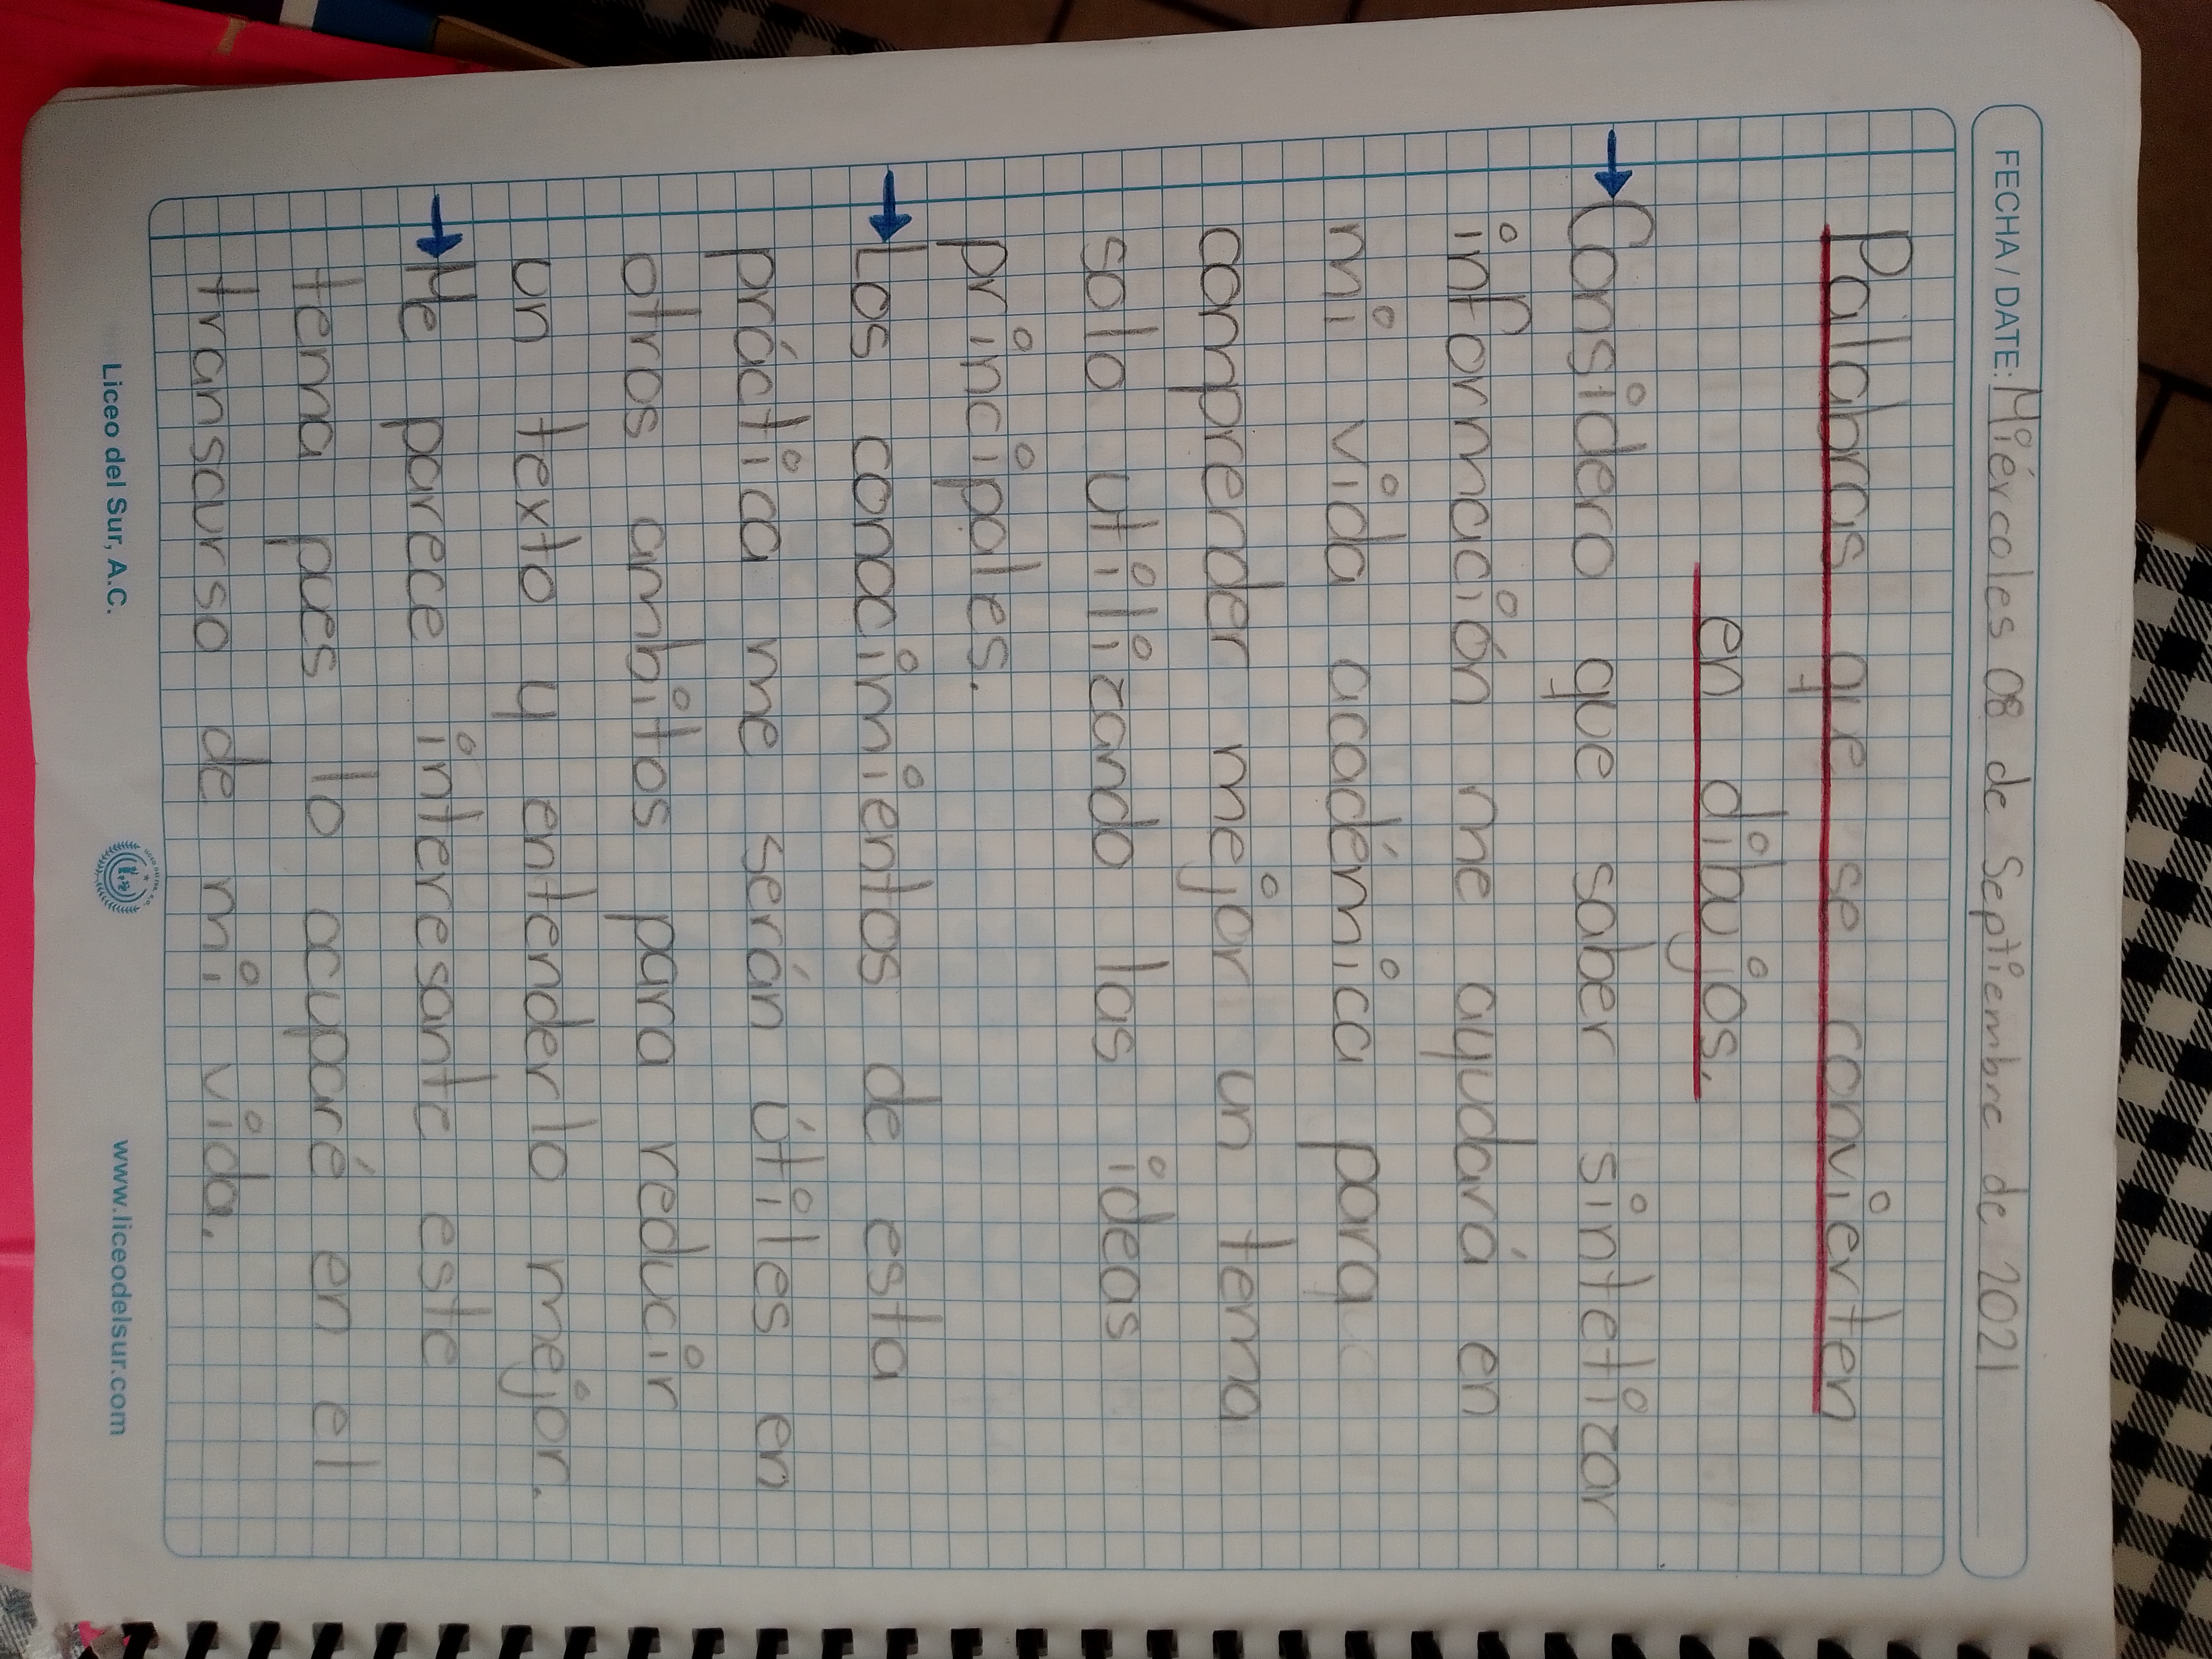 FECHA / DATE: Miércoles 08 de Septiembre de 2021
Palabras que se convierten
en dibujos.
→ Considero que saber sintetizar
información me ayudará en
mi vida académica para
comprender mejor un tema
solo utilizando las ideas
principales.
→ Los conocimientos de esta
práctica me serán útiles en
otros ambitos para reducir
un texto y entenderlo mejor.
→ Me parece interesante este
tema pues lo acuparé en el
transcurso de mi vida.
Liceo del Sur, A.C. www.liceodelsur.com